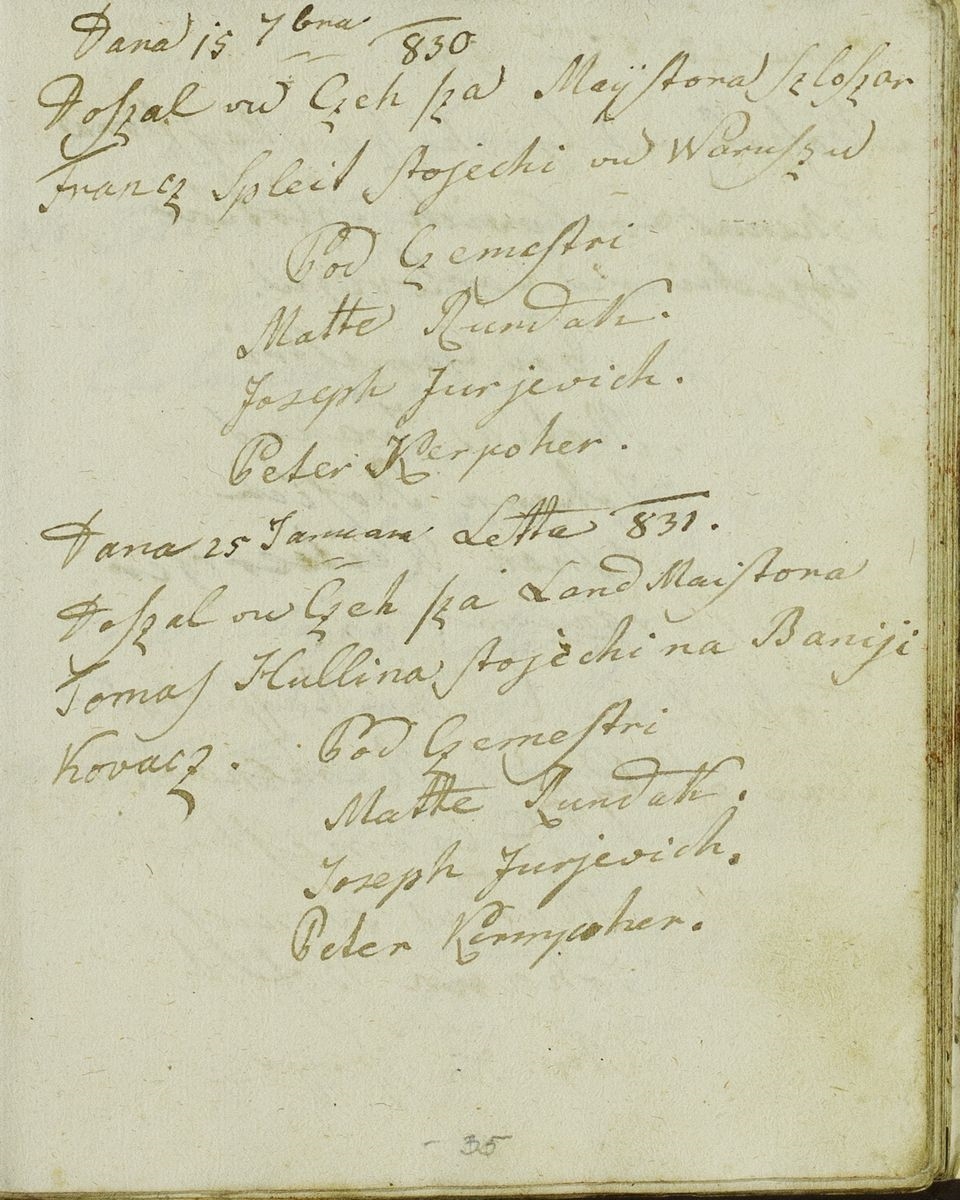 Dana 15 7bra 830
Doszal vu Czeh sza Maÿstora szloszar
Francz Spleit stojechi vu Waruszu
Pod Czemestri
Matte Rundak.
Joseph Jurjevich.
Peter Kerpoher.
Dana 25 Januara Letta 831.
Doszal vu Czeh sza Land Maistora
Tomas Hullina stojechi na Baniji
Kovacz. Pod Czemestri
Matte Rundak.
Joseph Jurjevich.
Peter
- 35